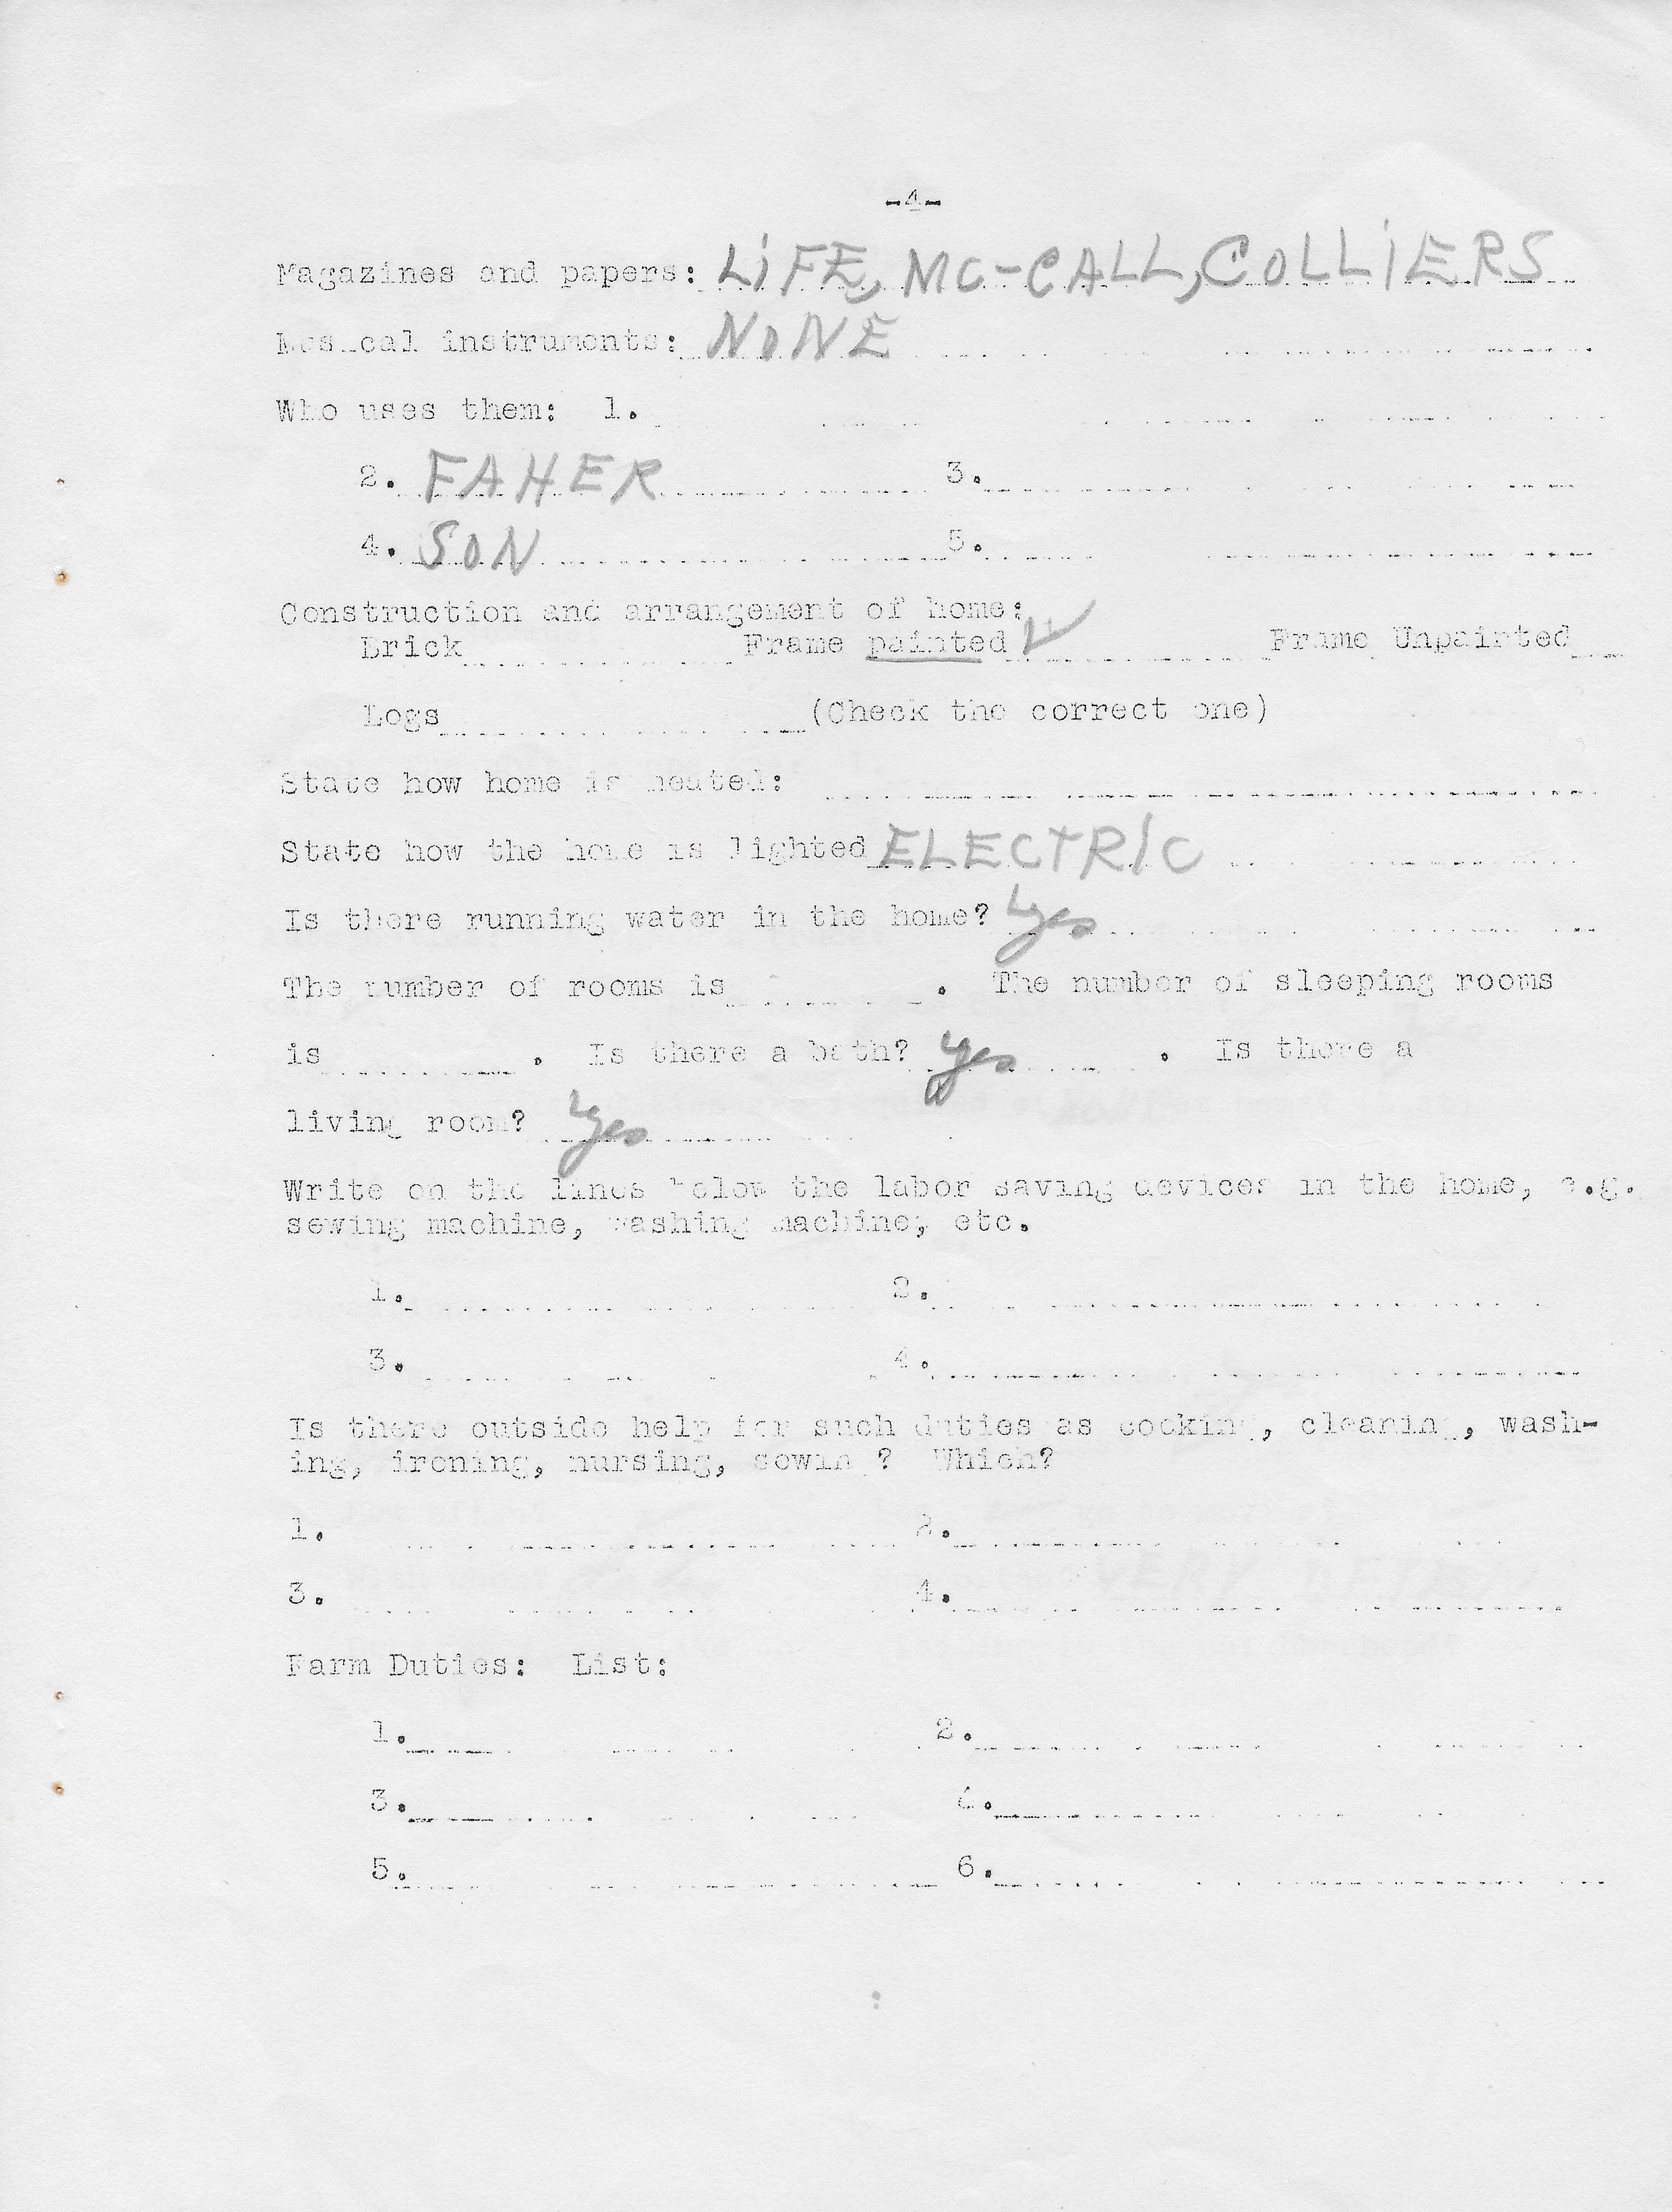 -4-
Magazines and papers: LiFE, MC-CALL, COLLiERS
Musical instruments: NONE
Who uses them: 1.
2. FAHER 3.
4. SON 5.
Construction and arrangement of home:
Brick Frame painted ✓ Frame Unpainted
Logs (Check the correct one)
State how home is heated:
State how the home is lighted ELECTRIC
Is there running water in the home? Yes
The number of rooms is . The number of sleeping rooms
is . Is there a bath? yes . Is there a
living room? Yes
Write on the lines below the labor saving devices in the home, e.g.
sewing machine, washing machine, etc.
1. 2.
3. 4.
Is there outside help for such duties as cooking, cleaning, wash-
ing, ironing, nursing, sewing? Which?
1. 2.
3. 4.
Farm Duties: List:
1. 2.
3. 4.
5. 6.